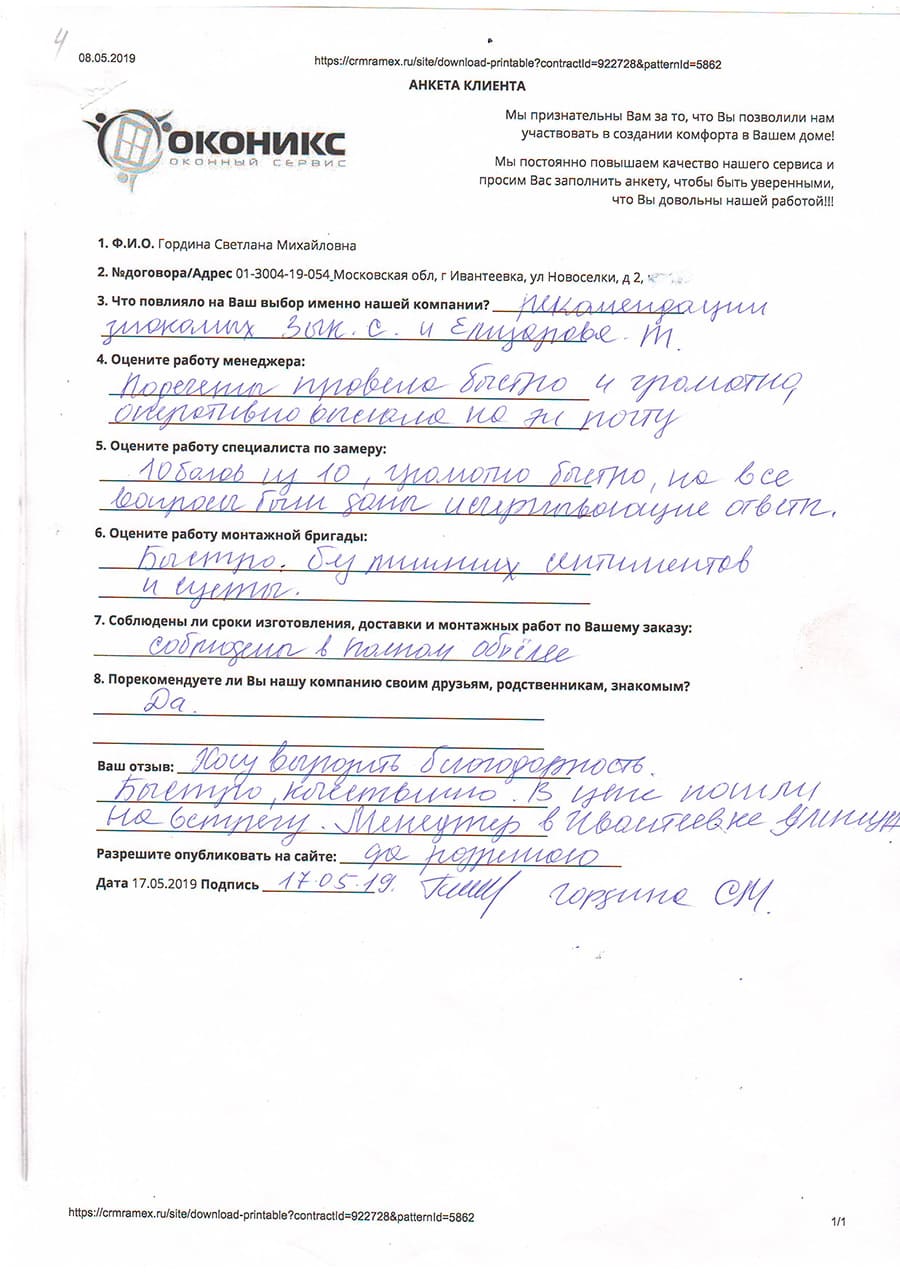 4
08.05.2019
https://crmramex.ru/site/download-printable?contractId=922728&patternId=5862
АНКЕТА КЛИЕНТА
ОКОНИКС
ОКОННЫЙ СЕРВИС
Мы признательны Вам за то, что Вы позволили нам
участвовать в создании комфорта в Вашем доме!
Мы постоянно повышаем качество нашего сервиса и
просим Вас заполнить анкету, чтобы быть уверенными,
что Вы довольны нашей работой!!!
1. Ф.И.О. Гордина Светлана Михайловна
2. №договора/Адрес 01-3004-19-054_Московская обл, г Ивантеевка, ул Новоселки, д 2,
3. Что повлияло на Ваш выбор именно нашей компании? рекомендации
знакомых Зык. С. и Елизарова. Т.
4. Оцените работу менеджера:
провела быстро и грамотно,
оперативно выслала на эл почту
5. Оцените работу специалиста по замеру:
10 балов из 10, грамотно быстро, на все
вопросы были даны исчерпывающие ответы.
6. Оцените работу монтажной бригады:
Быстро. без лишних сентиментов
и суеты.
7. Соблюдены ли сроки изготовления, доставки и монтажных работ по Вашему заказу:
соблюдены в полном объёме
8. Порекомендуете ли Вы нашу компанию своим друзьям, родственникам, знакомым?
Да.
Ваш отзыв: Хочу выразить благодарность.
Быстро, качественно. В цене пошли
на встречу. Менеджер в Ивантеевке
Разрешите опубликовать на сайте: да разрешаю
Дата 17.05.2019 Подпись 17.05.19. Гордина СМ.
https://crmramex.ru/site/download-printable?contractId=922728&patternId=5862
1/1